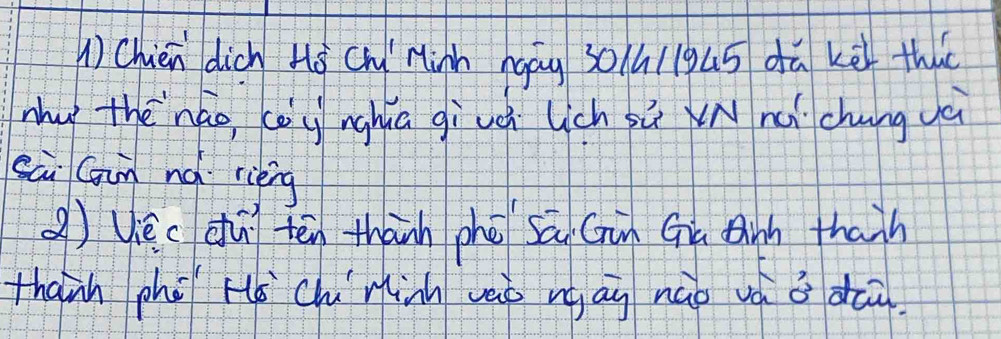 1) Chiến dịch Hồ Chí Minh ngày 30/4/1945 đã kết thúc
như thế nào, có ý nghĩa gì với lịch sử VN nói chung và
Sài Gòn nói riêng
2) Việc đổi tên thành phố Sài Gòn Gia Định thành
thành phố Hồ Chí Minh vào ngày nào và ở đâu.